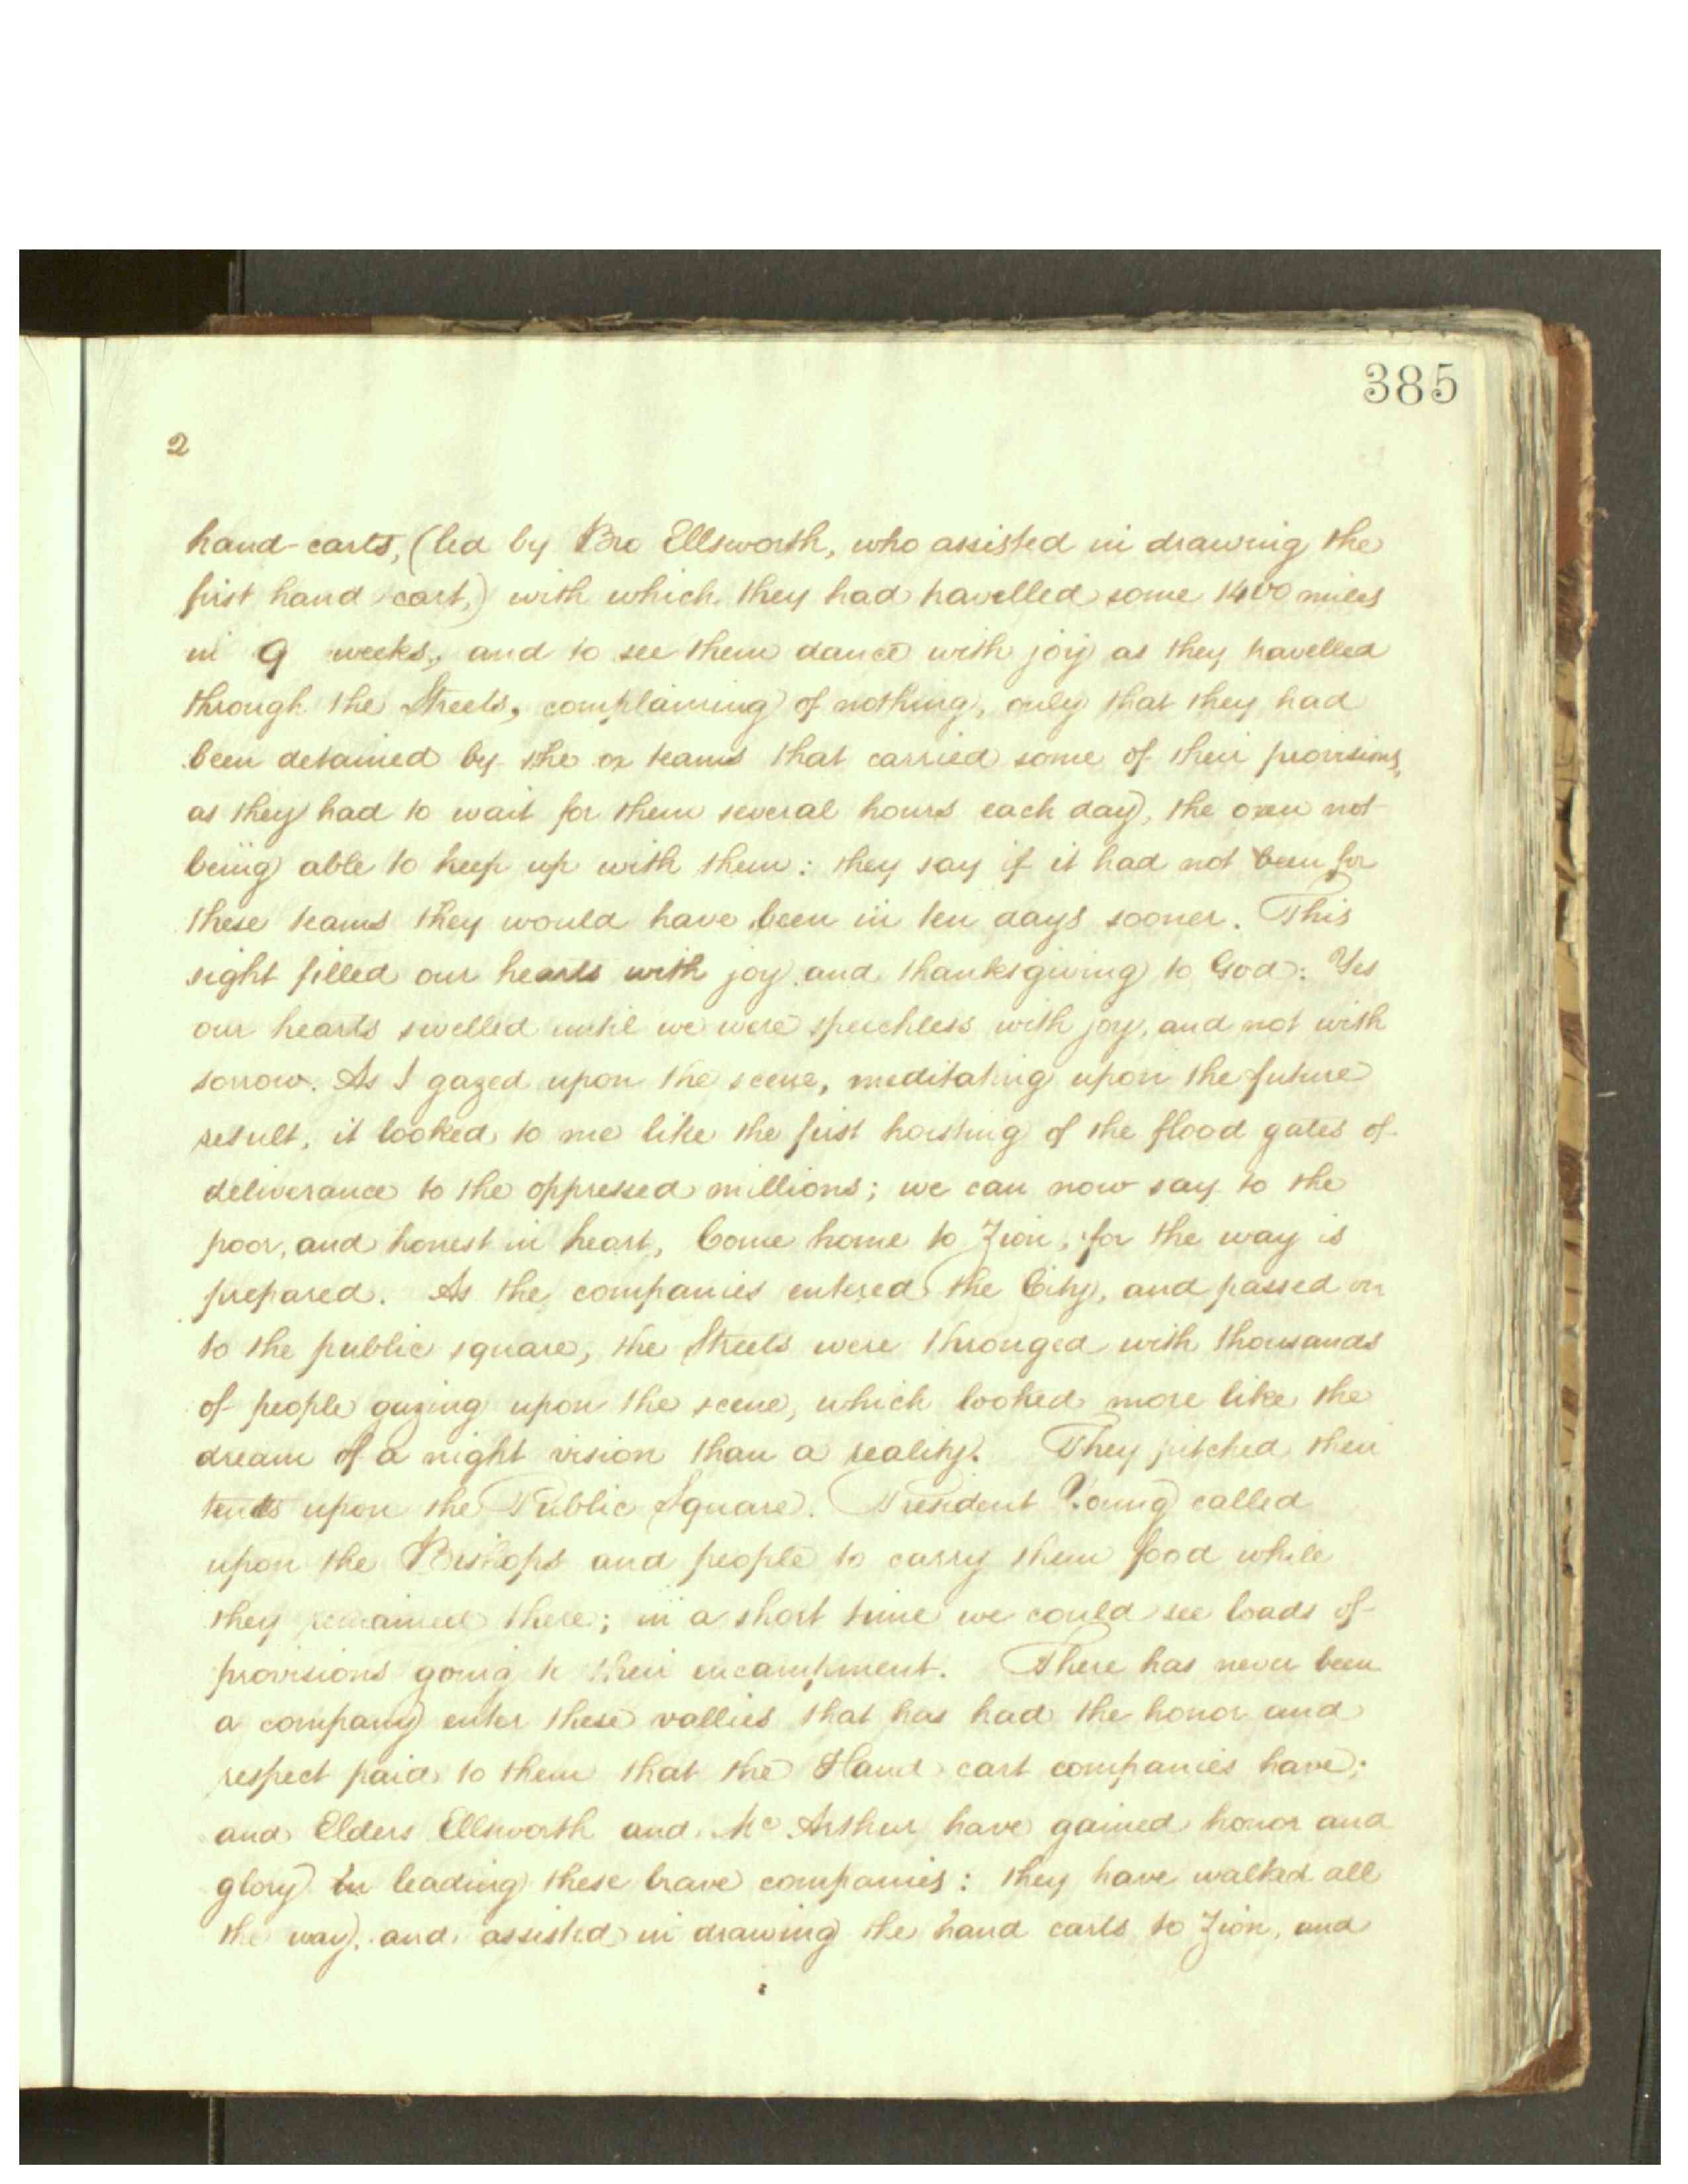 385
2
hand-carts, (led by Bro Ellsworth, who assisted in drawing the
first hand cart,) with which they had travelled some 1400 miles
in 9 weeks, and to see them dance with joy as they travelled
through the Streets, complaining of nothing, only that they had
been detained by the ox teams that carried some of their provisions,
as they had to wait for them several hours each day, the oxen not
being able to keep up with them: they say if it had not been for
these teams they would have been in ten days sooner. This
sight filled our hearts with joy and thanksgiving to God: Yes
our hearts swelled until we were speechless with joy, and not with
sorrow. As I gazed upon the scene, meditating upon the future
result, it looked to me like the first hoisting of the flood gates of
deliverance to the oppressed millions; we can now say to the
poor, and honest in heart, Come home to Zion, for the way is
prepared. As the companies entered the City, and passed on
to the public square, the Streets were thronged with thousands
of people gazing upon the scene, which looked more like the
dream of a night vision than a reality. They pitched their
tents upon the Public Square. President Young called
upon the Bishops and people to carry them food while
they remained there; in a short time we could see loads of
provisions going to their encampment. There has never been
a company enter these vallies that has had the honor and
respect paid to them that the Hand cart companies have;
and Elders Ellsworth and Mc Arthur have gained honor and
glory in leading these brave companies: they have walked all
the way, and assisted in drawing the hand carts to Zion, and